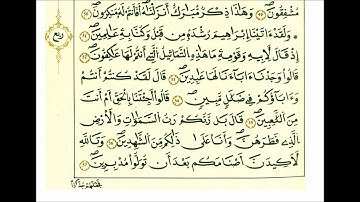 مُشْفِقُونَ ٤٩ وَهَٰذَا ذِكْرٌ مُّبَارَكٌ أَنزَلْنَٰهُ أَفَأَنتُمْ لَهُۥ مُنكِرُونَ ٥٠
وَلَقَدْ ءَاتَيْنَا إِبْرَٰهِيمَ رُشْدَهُۥ مِن قَبْلُ وَكُنَّا بِهِۦ عَٰلِمِينَ ٥١
إِذْ قَالَ لِأَبِيهِ وَقَوْمِهِۦ مَا هَٰذِهِ ٱلتَّمَاثِيلُ ٱلَّتِي أَنتُمْ لَهَا عَٰكِفُونَ ٥٢
قَالُوا۟ وَجَدْنَا ءَابَآءَنَا لَهَا عَٰبِدِينَ ٥٣ قَالَ لَقَدْ كُنتُمْ أَنتُمْ
وَءَابَآؤُكُمْ فِي ضَلَٰلٍ مُّبِينٍ ٥٤ قَالُوٓا۟ أَجِئْتَنَا بِٱلْحَقِّ أَمْ أَنتَ
مِنَ ٱللَّٰعِبِينَ ٥٥ قَالَ بَل رَّبُّكُمْ رَبُّ ٱلسَّمَٰوَٰتِ وَٱلْأَرْضِ
ٱلَّذِي فَطَرَهُنَّ وَأَنَا۠ عَلَىٰ ذَٰلِكُم مِّنَ ٱلشَّٰهِدِينَ ٥٦ وَتَٱللَّهِ
لَأَكِيدَنَّ أَصْنَٰمَكُم بَعْدَ أَن تُوَلُّوا۟ مُدْبِرِينَ ٥٧
ربع